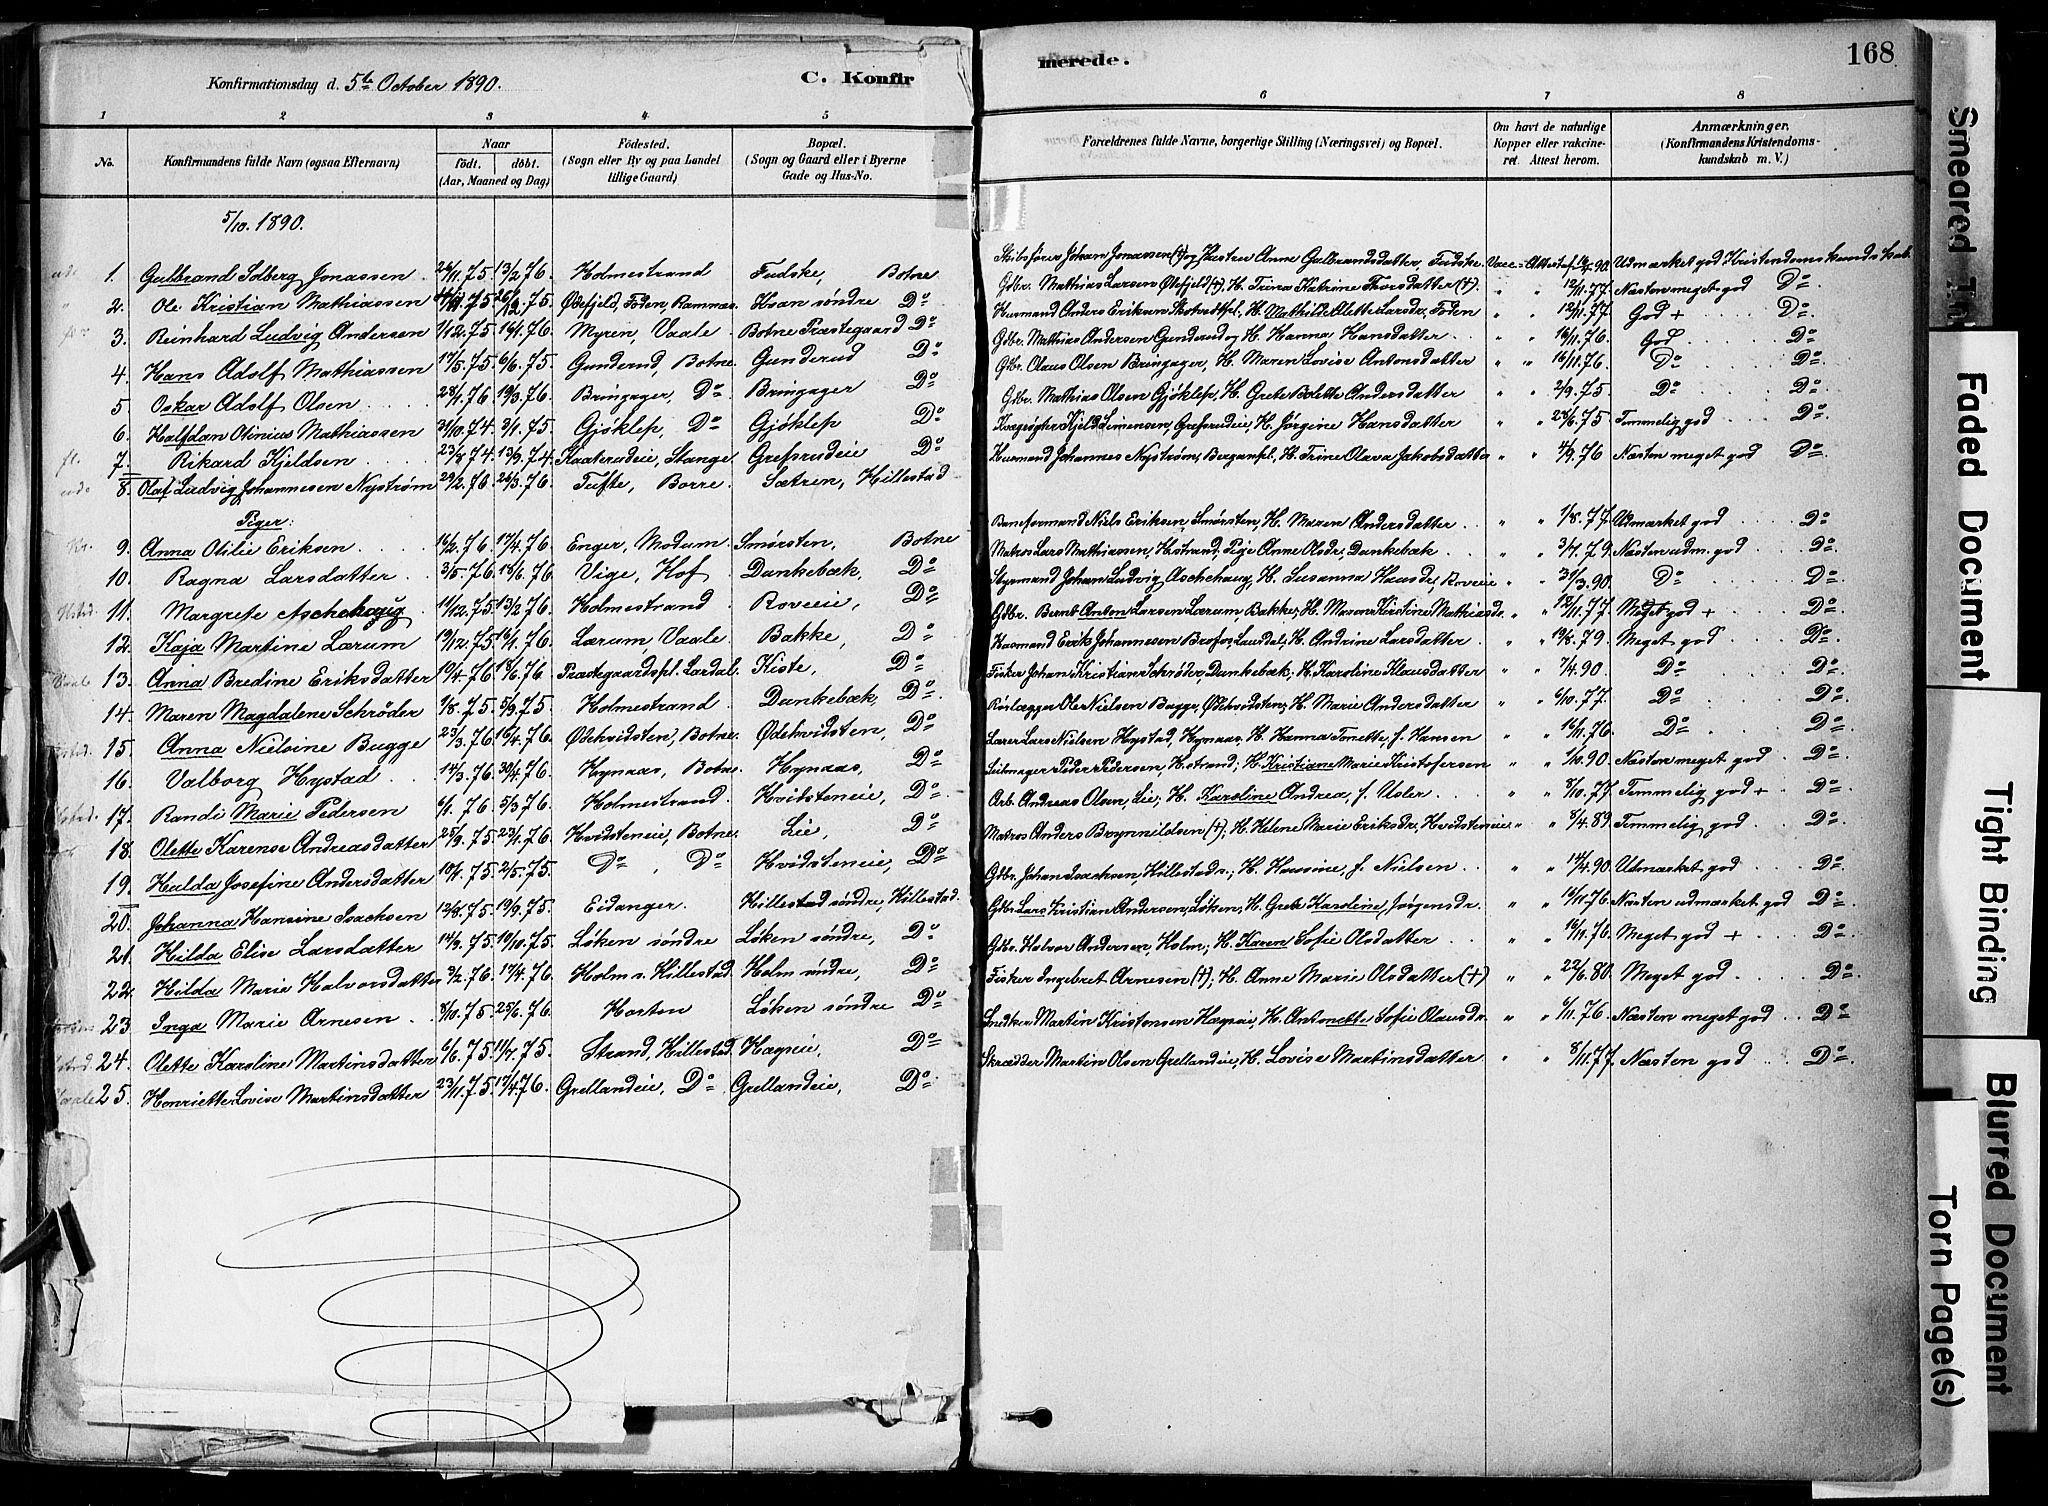 Konfirmationsdag d. 5te October 1890.
C. Konfir
merede.
168
1 2 3 4 5 6 7 8
No.
Konfirmandens fulde Navn (ogsaa Efternavn)
Naar
født. døbt.
(Aar, Maaned og Dag)
Fødested.
(Sogn eller By og paa Landet
tillige Gaard)
Bopæl.
(Sogn og Gaard eller i Byerne
Gade og Hus-No.
Forældrenes fulde Navne, borgerlige Stilling (Næringsvei) og Bopæl.
Om havt de naturlige
Kopper eller vakcine-
ret. Attest herom.
Anmærkninger.
(Konfirmandens Kristendoms-
kundskab m. V.)
5/10. 1890.
1. Gulbrand Solberg Jonassen 13/2.76. Holmestrand Fudske, Botne Johan Jonassen (+) Anne Gulbrandsdatter, Udmærket god Kristendomskundskab
2. Ole Kristian Mathiassen Øsefjeld, Foden, Ramnæs Kvan søndre Do Gdbr. Mathias Larsen Øsefjeld (+), H. Trina Katrine Thorsdatter (+). " " 12/11.77. Næsten meget god Do
3. Reinhard Ludvig Andersen 1/12.75 16/1.76. Myren, Vaale Botne Præstegaard Do Husmand Anders Eriksen H. Mathilde Olette Larsdr, Foden " " 12/11.77. God + Do
4. Hans Adolf Mathiassen 17/5.75. 6/6.75. Gunderud, Botne Gunderud Do Gdbr. Mathias Andersen Gunderud og H. Hanna Hansdatter " " 16/11.76. God Do
5. Oskar Adolf Olsen 28/1.76 19/3.76. Bringager, Do Bringager Do Gbr. Olaus Olsen Bringager, H. Maren Lovise Antonsdatter " " 16/11.76. Do Do
6. Halfdan Otinius Mathiassen 31/10.74. 3/1.75. Gjøklep, Do Gjøklep Do Gdbr. Mathias Olsen Gjøklep, H. Grete Bolette Andersdatter " " 2/9.75 Do Do
7. Rikard Kjeldsen 13/9.74. Stange Grefsrudeie Do Grefsrudeie, H. Jørgine Hansdatter " " 28/6.75 Temmelig god Do
8. Olaf Ludvig Johannesen Nystrøm 29/2.76 26/3.76. Tufte, Borre. Sætren, Hillestad Husmand Johannes Nystrøm, H. Trine Olava Jakobsdatter " " 4/9.76 Næsten meget god Do
Piger:
9. Anna Otilie Eriksen 16/2.76. 17/4.76. Enger, Modum. Smørsten, Botne Baneformand Niels Eriksen, Smørsten, H. Maren Andersdatter " " 1/8.77. Udmærket god Do
10. Ragna Larsdatter 3/5.76. 18/6.76. Vige, Hof Dunkebæk, Do Matros Lars Matthiassen, Hstrand, Pige Anne Olsdr, Dunkebæk " " 3/7.79. Næsten udm. god Do
11. Margrete Aschehoug 14/12.75. 13/2.76. Holmestrand Roveeie, Do Styrmand Johan Ludvig Aschehaug, H. Susanna Hansdr, Roveeie " " 31/3.90. Do Do
12. Kaja Martine Lærum 19/12.75. 16/4.76. Lærum Vaale. Bakke, Do Gdbr. Bernt Anton Larsen Lærum, Bakke; H. Maren Kristine Mathiasdr. " " 12/11.77. Meget god + Do
13. Anna Bredine Eriksdatter 19/4.76 18/6.76 Præstegaardspl. Lardal. Kiste, Do Husmand Erik Johannesen H. Andrine Larsdatter " " 19/8.79. Meget god Do
14. Maren Magdalene Schrøder 9/8.75. 5/9.75. Holmestrand Dunkebæk, Do Fisker Johan Kristian Schrøder, Dunkebæk, H. Karoline Klausdatter " " 7/4.90. Do Do
15. Anna Nielsine Bugge 23/3.76. 16/4.76. Ødehvidsten, Botne. Ødehvidsten, Do Ole Nielsen Bugge, Ødehvidsten; H. Marie Andersdatter " " 6/10.77. Do Do
16. Valborg Hystad 14/3.76. 30/4.76. Hynaas, Botne. Hynaas, Do Lærer Lars Nielsen Hystad, Hynaas, H. Hanna Tonette, f. Hansen " " 16/11.76. Do Do
17. Randi Marie Pedersen 6/1.76 5/3.76. Holmestrand. Hvidsteneie, Do Seilmager Peder Pedersen, H.strand; H. Kristiane Marie Kristofersen " " 1/10.90. Næsten meget god Do
18. Olette Karense Andreasdatter 25/9.75 23/1.76. Hvidsteneie, Botne. Lie, Do Arb. Andreas Olsen, Lie; H. Karoline Andrea, f. " " 8/10.77 Temmelig god + Do
19. Hulda Josefine Andersdatter 10/1.75. 2/5.75. Do, Do Hvidsteneie, Do Matros Anders Brynnildsen (+), H. Helene Marie Eriksdr, Hvidsteneie " " 8/4.89. Temmelig god Do
20. Johanna Hansine Isachsen 13/8.75. 19/9.75. Eidanger. Hillestad søndre, Hillestad. Gdbr. Johan Isachsen, Hillestad s.; H. f. Nielsen " " 17/4.90. Udmærket god Do
21. Hilda Elise Larsdatter 14/9.75. 19/10.75. Løken søndre Løken søndre, Do Gdbr. Lars Kristian Andersen, Løken, H. Grete Karoline, Jørgensdr. " " 14/11.76. Næsten udmærket god Do
22. Hilda Marie Halvorsdatter 3/2.76 17/4.76. Holm s. Hillestad Holm søndre, Do Gdbr. Halvor Andersen, Holm; H. Karen Sofie Olsdatter " " 16/11.76. Meget god + Do
23. Inga Marie Arnesen 8/10.75 25/6.76. Horten Løken søndre Do Fisker Ingebret Arnesen (+); H. Anne Marie Olsdatter (+) " " 22/6.80. Meget god Do
24. Olette Karoline Martinsdatter 6/6.75. 11/7.75. Strand, Hillestad Hagseie, Do Snedker Martin Kristensen Hagseie, H. Antonette Sofie Olausdr. " " 6/11.76. Næsten meget god Do
25. Henriette Lovise Martinsdatter 23/11.75. 17/4.76. Grellandeie, Do Grellandeie, Do Skrædder Martin Olsen Grellandeie, H. Lovise Martinsdatter " " 8/11.77. Næsten god Do
Faded Document
Tight Binding
Blurred Document
Torn Page(s)